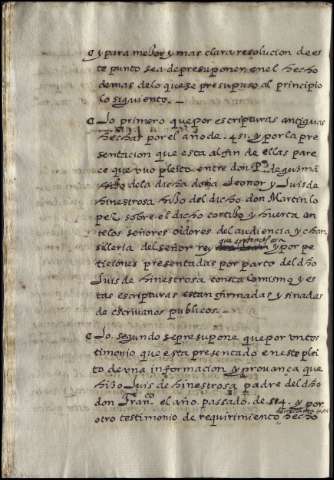 y para mejor y mas clara resolucion de es
te punto se a de presuponer en el hecho
demas de lo que se presupuso al principio
lo siguiente.
Lo primero que por escripturas antiguas
hechas por el año de 451. y por la pre
sentacion que esta al fin de ellas pare
ce que vuo pleito entre don P.º de guzmã
hijo de la dicha doña Leonor y Luis de
hinestrosa hijo del dicho don Martin lo
pez sobre el dicho cortijo y huerta an
te los señores oidores del audiencia y chan
silleria del señor rey y por pe
ticiones presentadas por parte del dho
Luis de hinestrosa consta lo mismo y es
tas escripturas estan firmadas y sinadas
de escriuanos publicos.
Lo segundo se presupone que por vn tes
timonio que esta presentado en este plei
to de vna informacion y prouança que
hizo Luis de hinestrosa padre del dho
don Fran.co el año passado de 514. y por
otro testimonio de requirimiento hecho